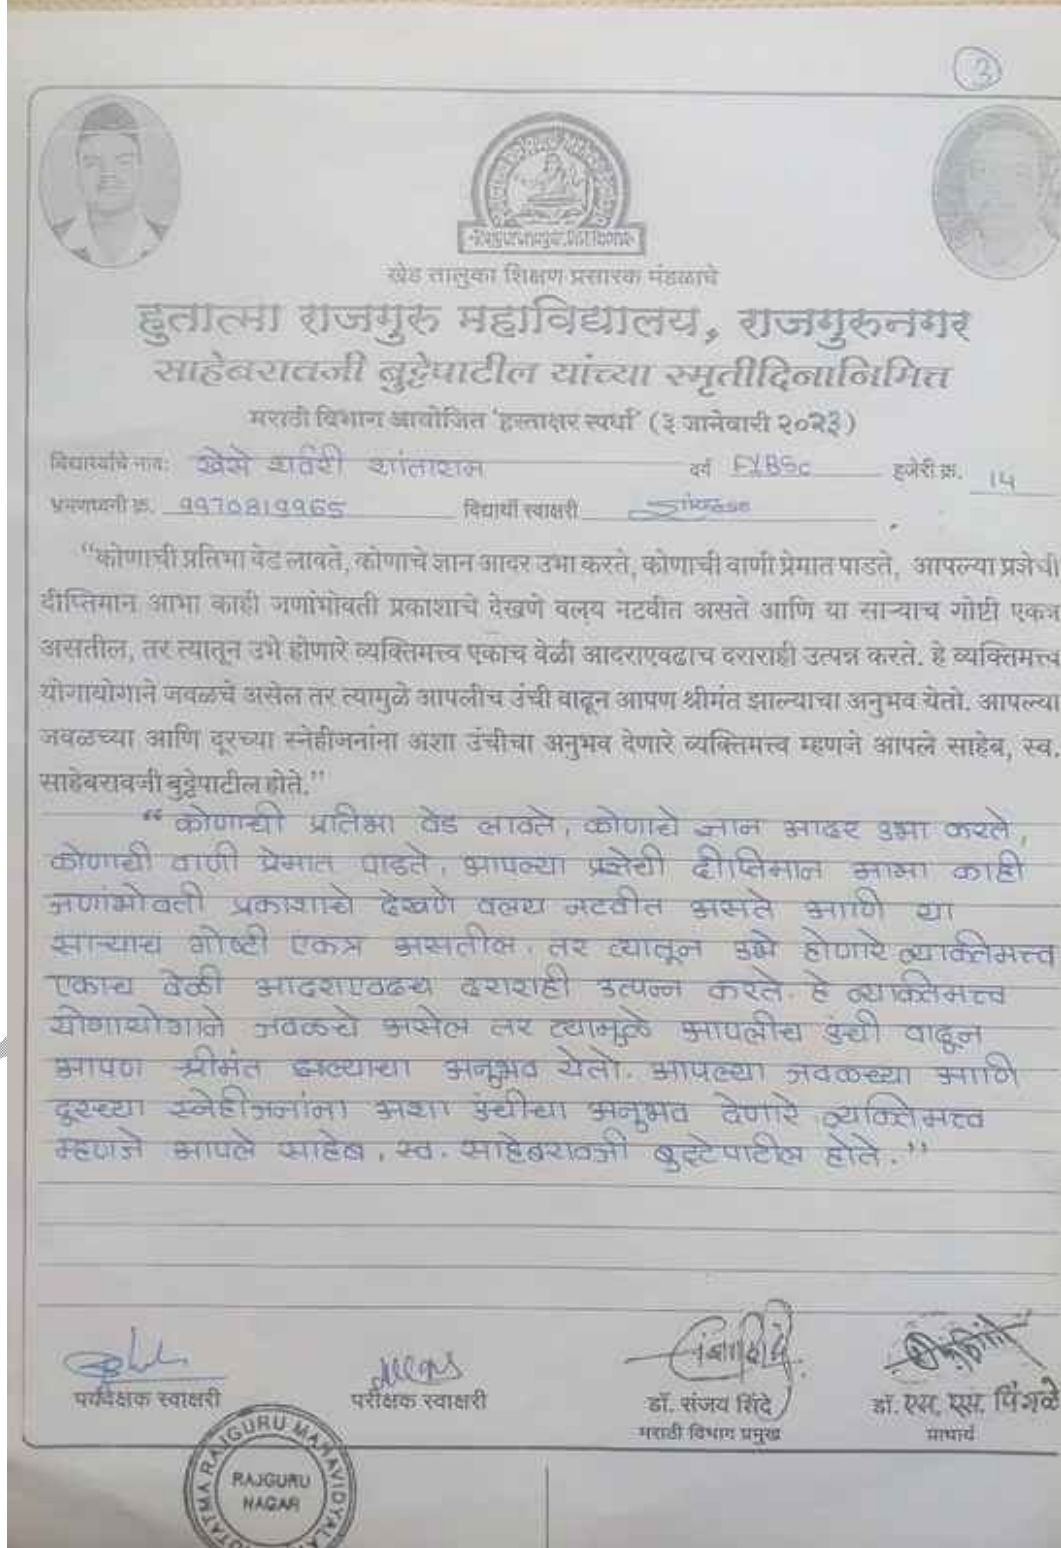 3
खेड तालुका शिक्षण प्रसारक मंडळाचे
हुतात्मा राजगुरु महाविद्यालय, राजगुरुनगर
साहेबरावजी बुट्टेपाटील यांच्या स्मृतीदिनानिमित्त
मराठी विभाग आयोजित 'हस्ताक्षर स्पर्धा' (३ जानेवारी २०२३)
विद्यार्थ्याचे नाव: खेसे शर्वरी शांताराम वर्ग FYBSc हजेरी क्र. 14
भ्रमणध्वनी क्र. 9970819965 विद्यार्थी स्वाक्षरी
“कोणाची प्रतिभा वेड लावते, कोणाचे ज्ञान आदर उभा करते, कोणाची वाणी प्रेमात पाडते, आपल्या प्रज्ञेची
दीप्तिमान आभा काही जणांभोवती प्रकाशाचे देखणे वलय नटवीत असते आणि या साऱ्याच गोष्टी एकत्र
असतील, तर त्यातून उभे होणारे व्यक्तिमत्त्व एकाच वेळी आदराएवढाच दराराही उत्पन्न करते. हे व्यक्तिमत्त्व
योगायोगाने जवळचे असेल तर त्यामुळे आपलीच उंची वाढून आपण श्रीमंत झाल्याचा अनुभव येतो. आपल्या
जवळच्या आणि दूरच्या स्नेहीजनांना अशा उंचीचा अनुभव देणारे व्यक्तिमत्त्व म्हणजे आपले साहेब, स्व.
साहेबरावजी बुट्टेपाटील होते.”
“ कोणाची प्रतिभा वेड लावते, कोणाचे ज्ञान आदर उभा करते,
कोणाची वाणी प्रेमात पाडते, आपल्या प्रज्ञेची दीप्तिमान आभा काही
जणांभोवती प्रकाशाचे देखणे वलय नटवीत असते आणि या
साऱ्याच गोष्टी एकत्र असतील, तर त्यातून उभे होणारे व्यक्तिमत्त्व
एकाच वेळी आदराएवढच दराराही उत्पन्न करते. हे व्यक्तिमत्त्व
योगायोगाने जवळचे असेल तर त्यामुळे आपलीच उंची वाढून
आपण श्रीमंत झाल्याचा अनुभव येतो. आपल्या जवळच्या आणि
दूरच्या स्नेहीजनांना अशा उंचीचा अनुभव देणारे व्यक्तिमत्त्व
म्हणजे आपले साहेब, स्व. साहेबरावजी बुट्टेपाटील होते.”
पर्यवेक्षक स्वाक्षरी परीक्षक स्वाक्षरी डॉ. संजय शिंदे डॉ. एस. एस. पिंगळे
मराठी विभाग प्रमुख प्राचार्य
RAJGURU MAHAVIDYALA
RAJGURU
NAGAR